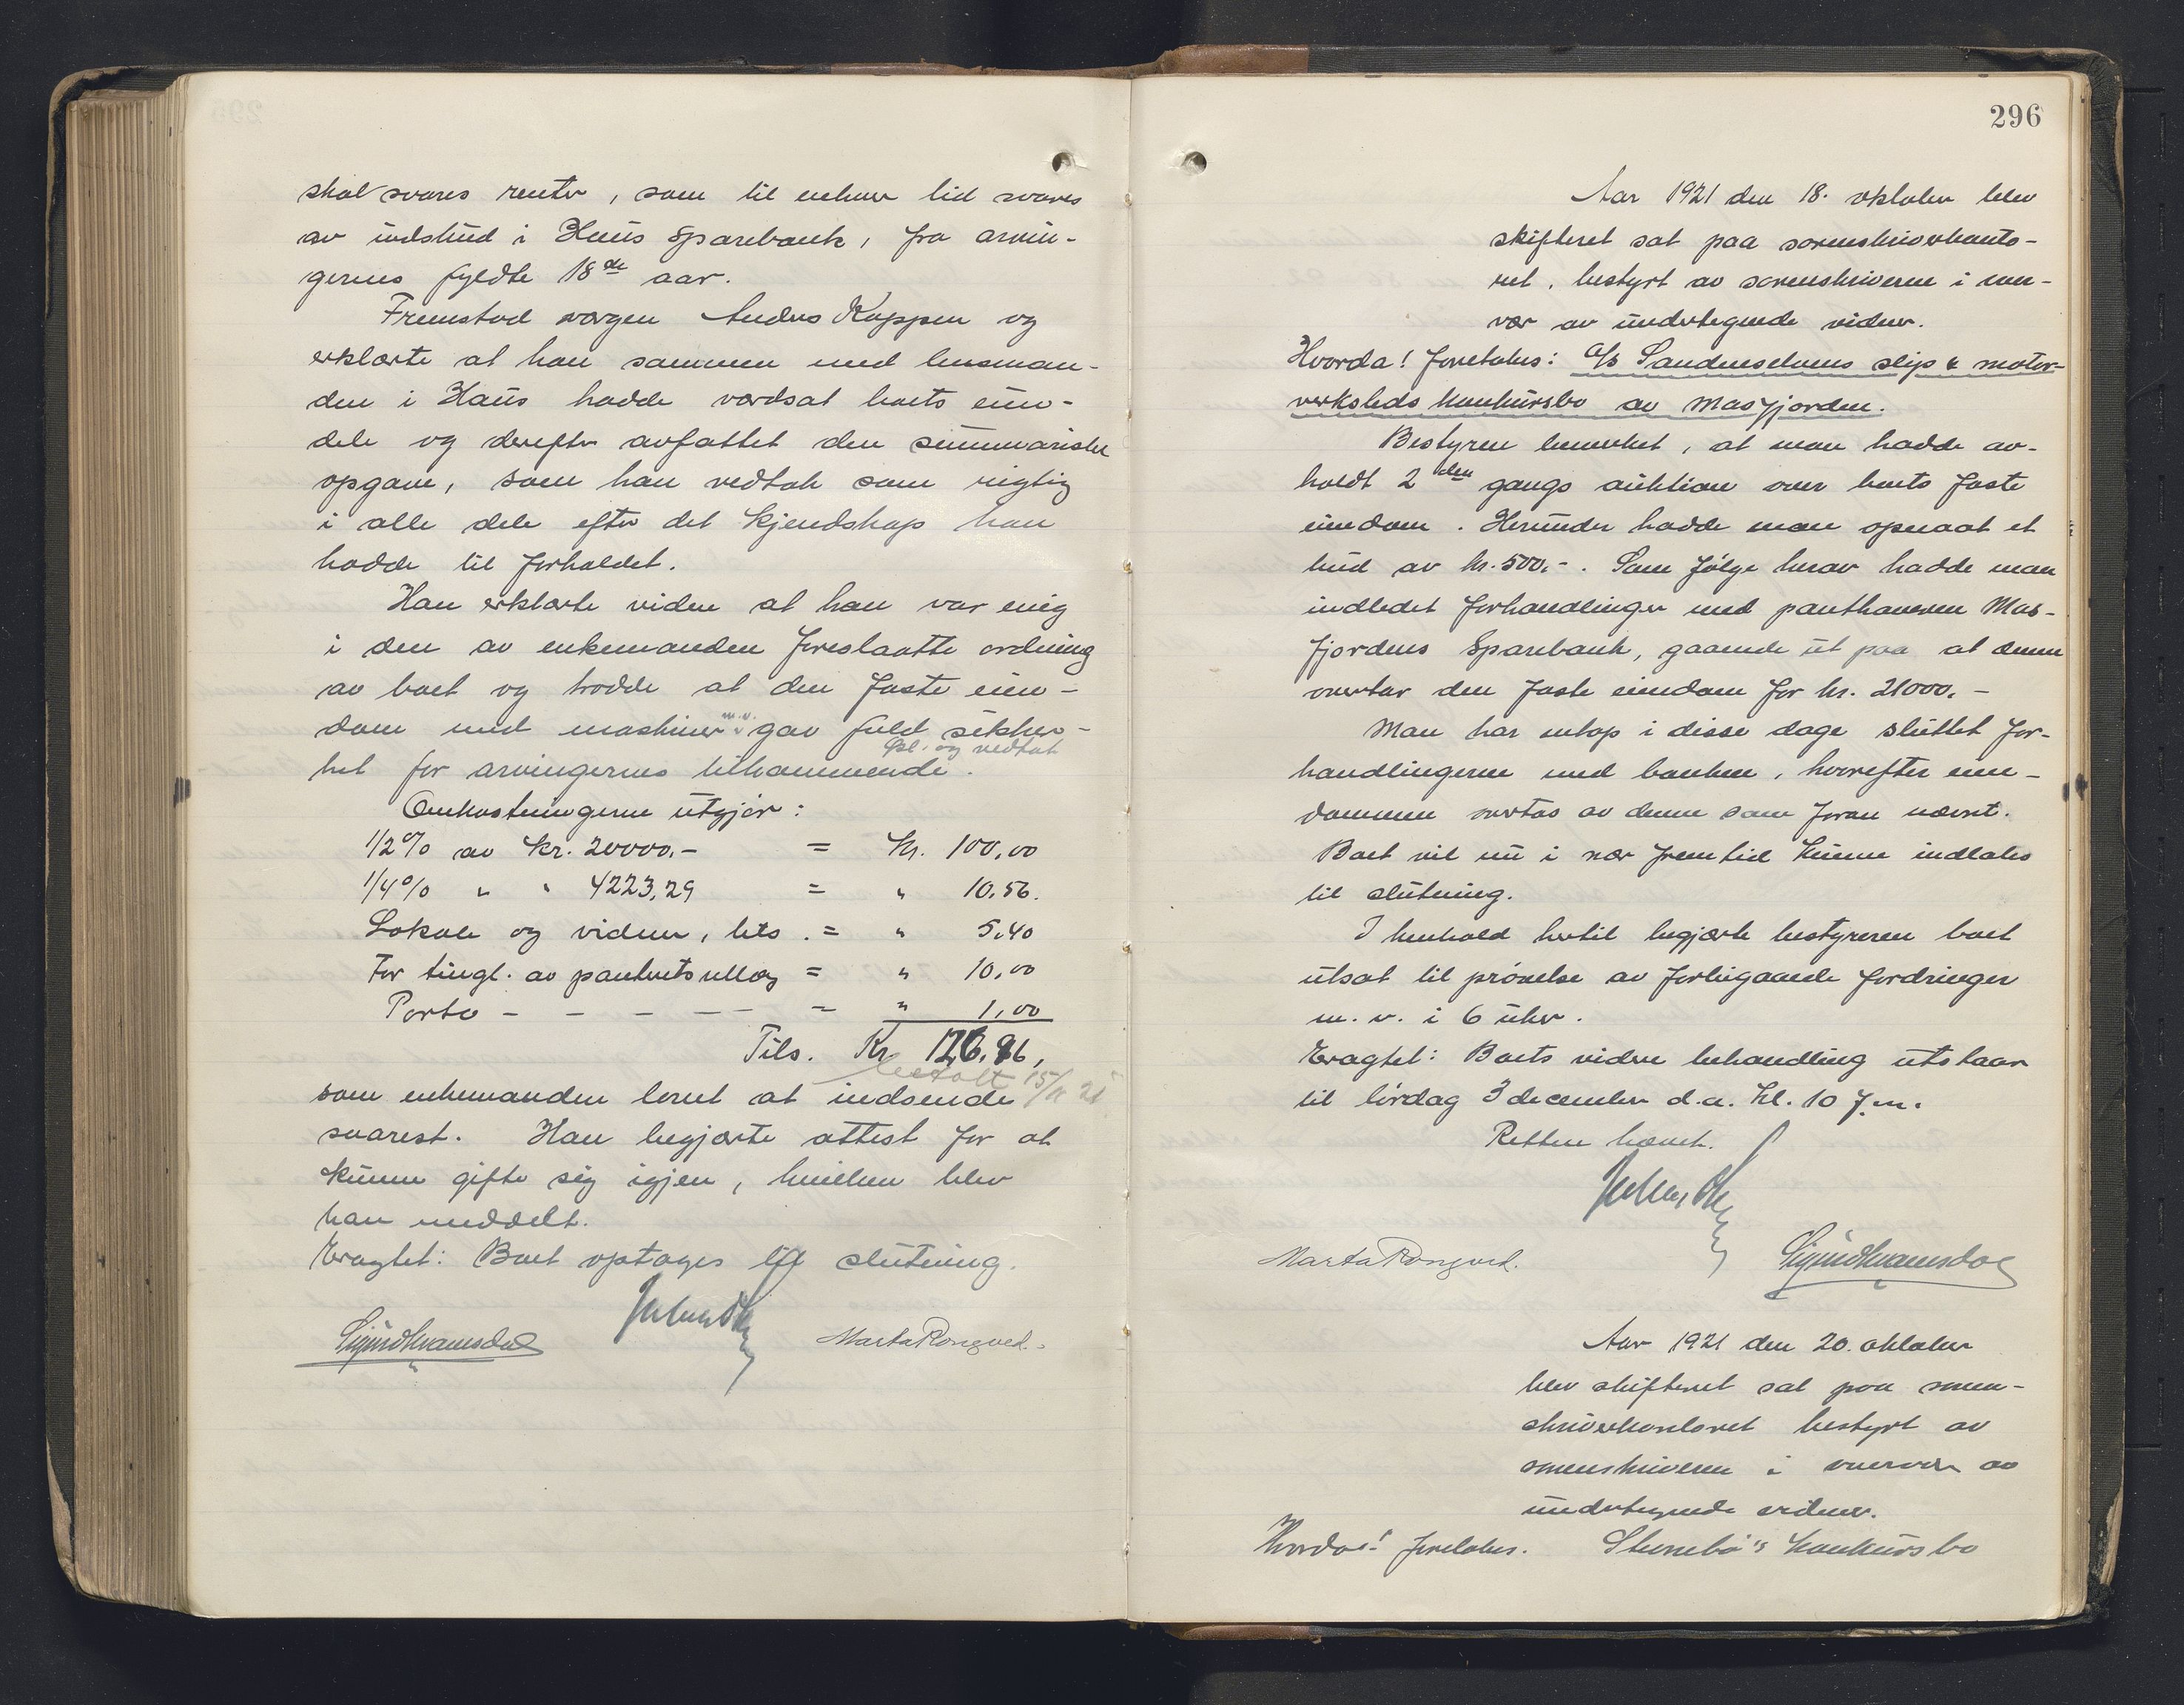 skal svares renter, som til enhver tid svares
av indskud i Haus Sparebank, fra arvin-
gernes fyldte 18de aar.
Fremstod værgen Anders Koppen og
erklærte at han sammen med lensman-
den i Haus hadde værdsat boets eien-
dele og derefter avfattet den summariske
opgave, som han vedtok som rigtig
i alle dele efter det kjendskap han
hadde til forholdet.
Han erklærte videre at han var enig
i den av enkemanden foreslaatte ordning
av boet og trodde at den faste eien-
dom med maskiner m.v. gav fuld sikker-
het for arvingernes tilkommende.
Opl. og vedtat
Omkostningerne utgjør:
1/2% av kr. 20000,- = Kr. 100,00
1/4% " " 4223,29 = " 10,56.
Lokale og vidner, tils. = " 5,40
For tingl. av pantretsutlæg = " 10,00
Porto - - - - - = " 1,00
Tils. Kr 126.96,
betalt 15/11 21
som enkemanden lovet at indsende
snarest. Han begjærte attest for at
kunne gifte sig igjen, hvilken blev
han meddelt.
Eragtet: Boet optages til slutning.
Sigurd Kvamsdal
Marta Rongved.
296
Aar 1921 den 18. oktober blev
skifteret sat paa sorenskriverkonto-
ret, bestyrt av sorenskriveren i nær-
vær av undertegnede vidner.
Hvorda! foretokes: A/s Sandneselvens slip & motor-
verksteds konkursbo av Masfjorden.
Bestyreren bemerket, at man hadde av-
holdt 2den gangs auktion over boets faste
eiendom. Herunder hadde man opnaat et
bud av kr. 500,-. Som følge herav hadde man
indledet forhandlinger med panthaveren Mas-
fjordens Sparebank, gaaende ut paa at denne
overtar den faste eiendom for kr. 21000,-
Man har netop i disse dage sluttet for-
handlingerne med banken, hvorefter eien-
dommen overtas av denne som foran nævnt.
Boet vil nu i nær fremtid kunne indlates
til slutning.
I henhold hertil begjærte bestyreren boet
utsat til prøvelse av forliggende fordringer
m. v. i 6 uker.
Eragtet: Boets videre behandling utstaar
til lørdag 3 december d.a. kl. 10 f.m.
Retten hævet.
Marta Rongved.
Sigurd Kvamsdal
Aar 1921 den 20. oktober
blev skifteret sat paa soren-
skriverkontoret bestyrt av
sorenskriveren i nærvær av
undertegnede vidner.
Hvorda! foretokes. Stenebø's konkursbo